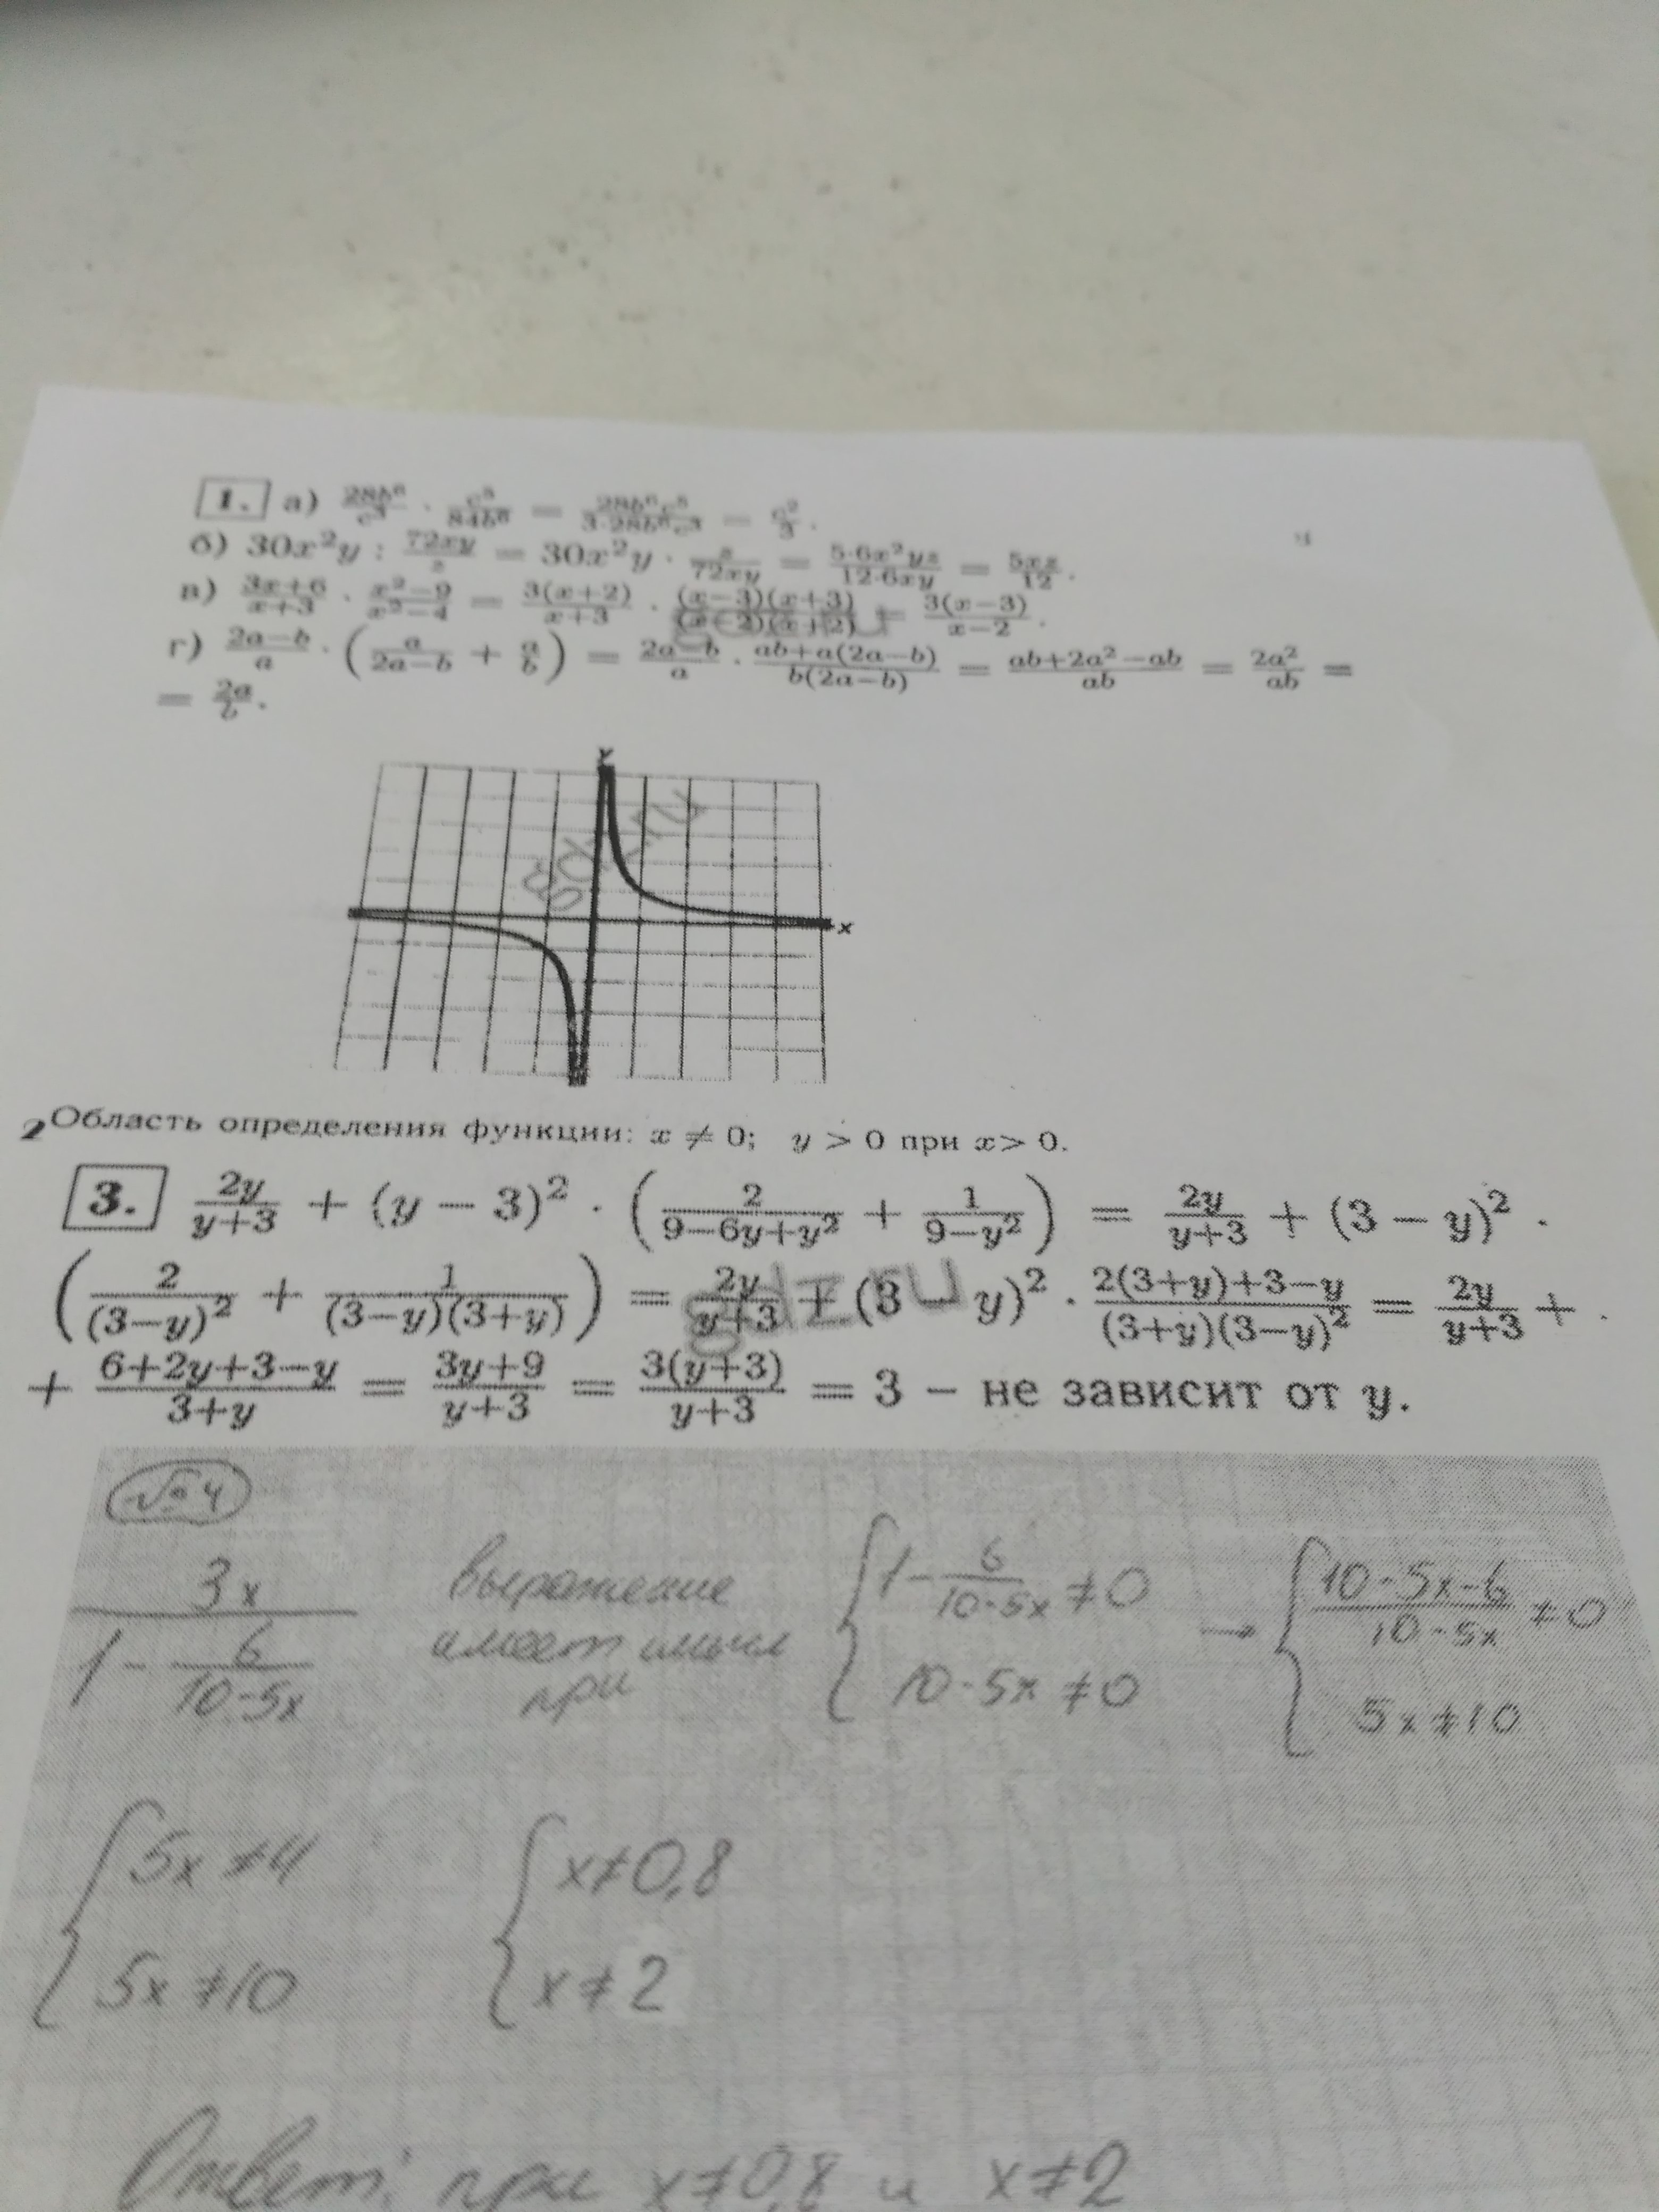 1. а) 28b⁶/c³ · c⁵/84b⁶ = 28b⁶c⁵/3·28b⁶c³ = c²/3.
б) 30x²y : 72xy/z = 30x²y · z/72xy = 5·6x²yz/12·6xy = 5xz/12.
в) 3x+6/x+3 · x²−9/x²−4 = 3(x+2)/x+3 · (x−3)(x+3)/(x−2)(x+2) = 3(x−3)/x−2.
г) 2a−b/a · (a/2a−b + a/b) = 2a−b/a · ab+a(2a−b)/b(2a−b) = ab+2a²−ab/ab = 2a²/ab =
= 2a/b.
y
x
2 Область определения функции: x ≠ 0; y > 0 при x > 0.
3. 2y/y+3 + (y − 3)² · (2/9−6y+y² + 1/9−y²) = 2y/y+3 + (3 − y)² ·
(2/(3−y)² + 1/(3−y)(3+y)) = 2y/y+3 + (3 − y)² · 2(3+y)+3−y/(3+y)(3−y)² = 2y/y+3 +
+ 6+2y+3−y/3+y = 3y+9/y+3 = 3(y+3)/y+3 = 3 – не зависит от y.
№4
3x/1 - 6/10-5x выражение имеет смысл при { 1 - 6/10-5x ≠ 0 → { 10-5x-6/10-5x ≠ 0
10-5x ≠ 0 5x ≠ 10
{ 5x ≠ 4 { x ≠ 0,8
5x ≠ 10 x ≠ 2
Ответ: при x ≠ 0,8 и x ≠ 2